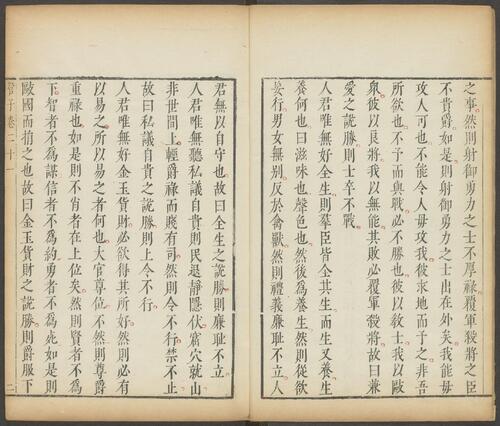 之事然則射御勇力之士不厚祿覆軍殺將之臣
不貴爵如是則射御勇力之士出在外矣我能毋
攻人可也不能令人毋攻我彼求地而予之非吾
所欲也不予而與戰必不勝也彼以敎士我以敺
衆彼以良將我以無能其敗必覆軍殺將故曰兼
愛之說勝則士卒不戰
人君唯無好全生則羣臣皆全其生而生又養生
養何也曰滋味也聲色也然後為養生然則從欲
妄行男女無别反於禽獸然則禮義廉恥不立人
君無以自守也故曰全生之說勝則廉恥不立
人君唯無聽私議自貴則民退靜隱伏窟穴就山
非世間上輕爵祿而賤有司然則令不行禁不止
故曰私議自貴之說勝則上令不行
人君唯無好金玉貨財必欲得其所好然則必有
以易之所以易之者何也大官尊位不然則尊爵
重祿也如是則不肖者在上位矣然則賢者不為
下智者不為謀信者不為約勇者不為死如是則
敺國而捐之也故曰金玉貨財之說勝則爵服下
管子卷二十一
二